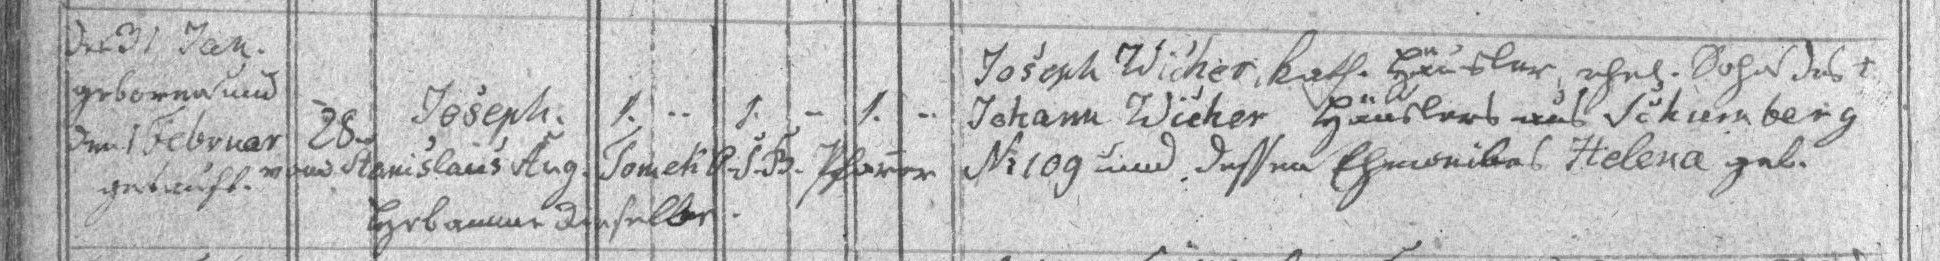 den 31 Jan.
geboren und
den 1 Februar
getauft.
28.
Joseph. 1. " 1. - 1. "
von Stanislaus Aug. Tomek O.S.B. Pfarrer
Hebamme dieselbe.
Joseph Wicher, kath. Häusler, ehel. Sohn des †
Johann Wicher Häuslers aus Schumberg
Nr 109 und dessen Eheweibes Helena geb.